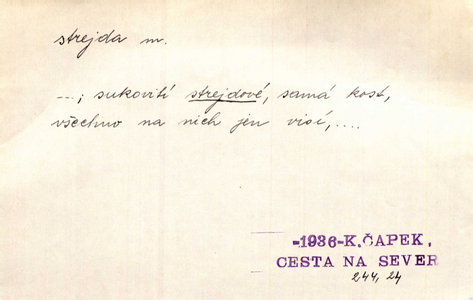 strejda m.
...; sukovití strejdové, samá kost,
všechno na nich jen visí,....
-1936-K.ČAPEK,
CESTA NA SEVER
244, 24